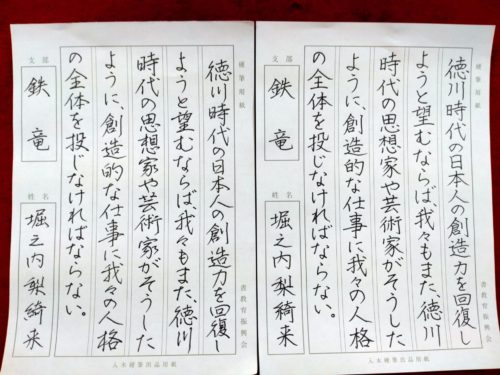 硬筆用紙
書教育振興会
徳川時代の日本人の創造力を回復し
ようと望むならば、我々もまた、徳川
時代の思想家や芸術家がそうした
ように、創造的な仕事に我々の人格
の全体を投じなければならない。
支部
鉄竜
姓名
堀之内梨綺来
入木硬筆出品用紙
硬筆用紙
書教育振興会
徳川時代の日本人の創造力を回復し
ようと望むならば、我々もまた、徳川
時代の思想家や芸術家がそうした
ように、創造的な仕事に我々の人格
の全体を投じなければならない。
支部
鉄竜
姓名
堀之内梨綺来
入木硬筆出品用紙